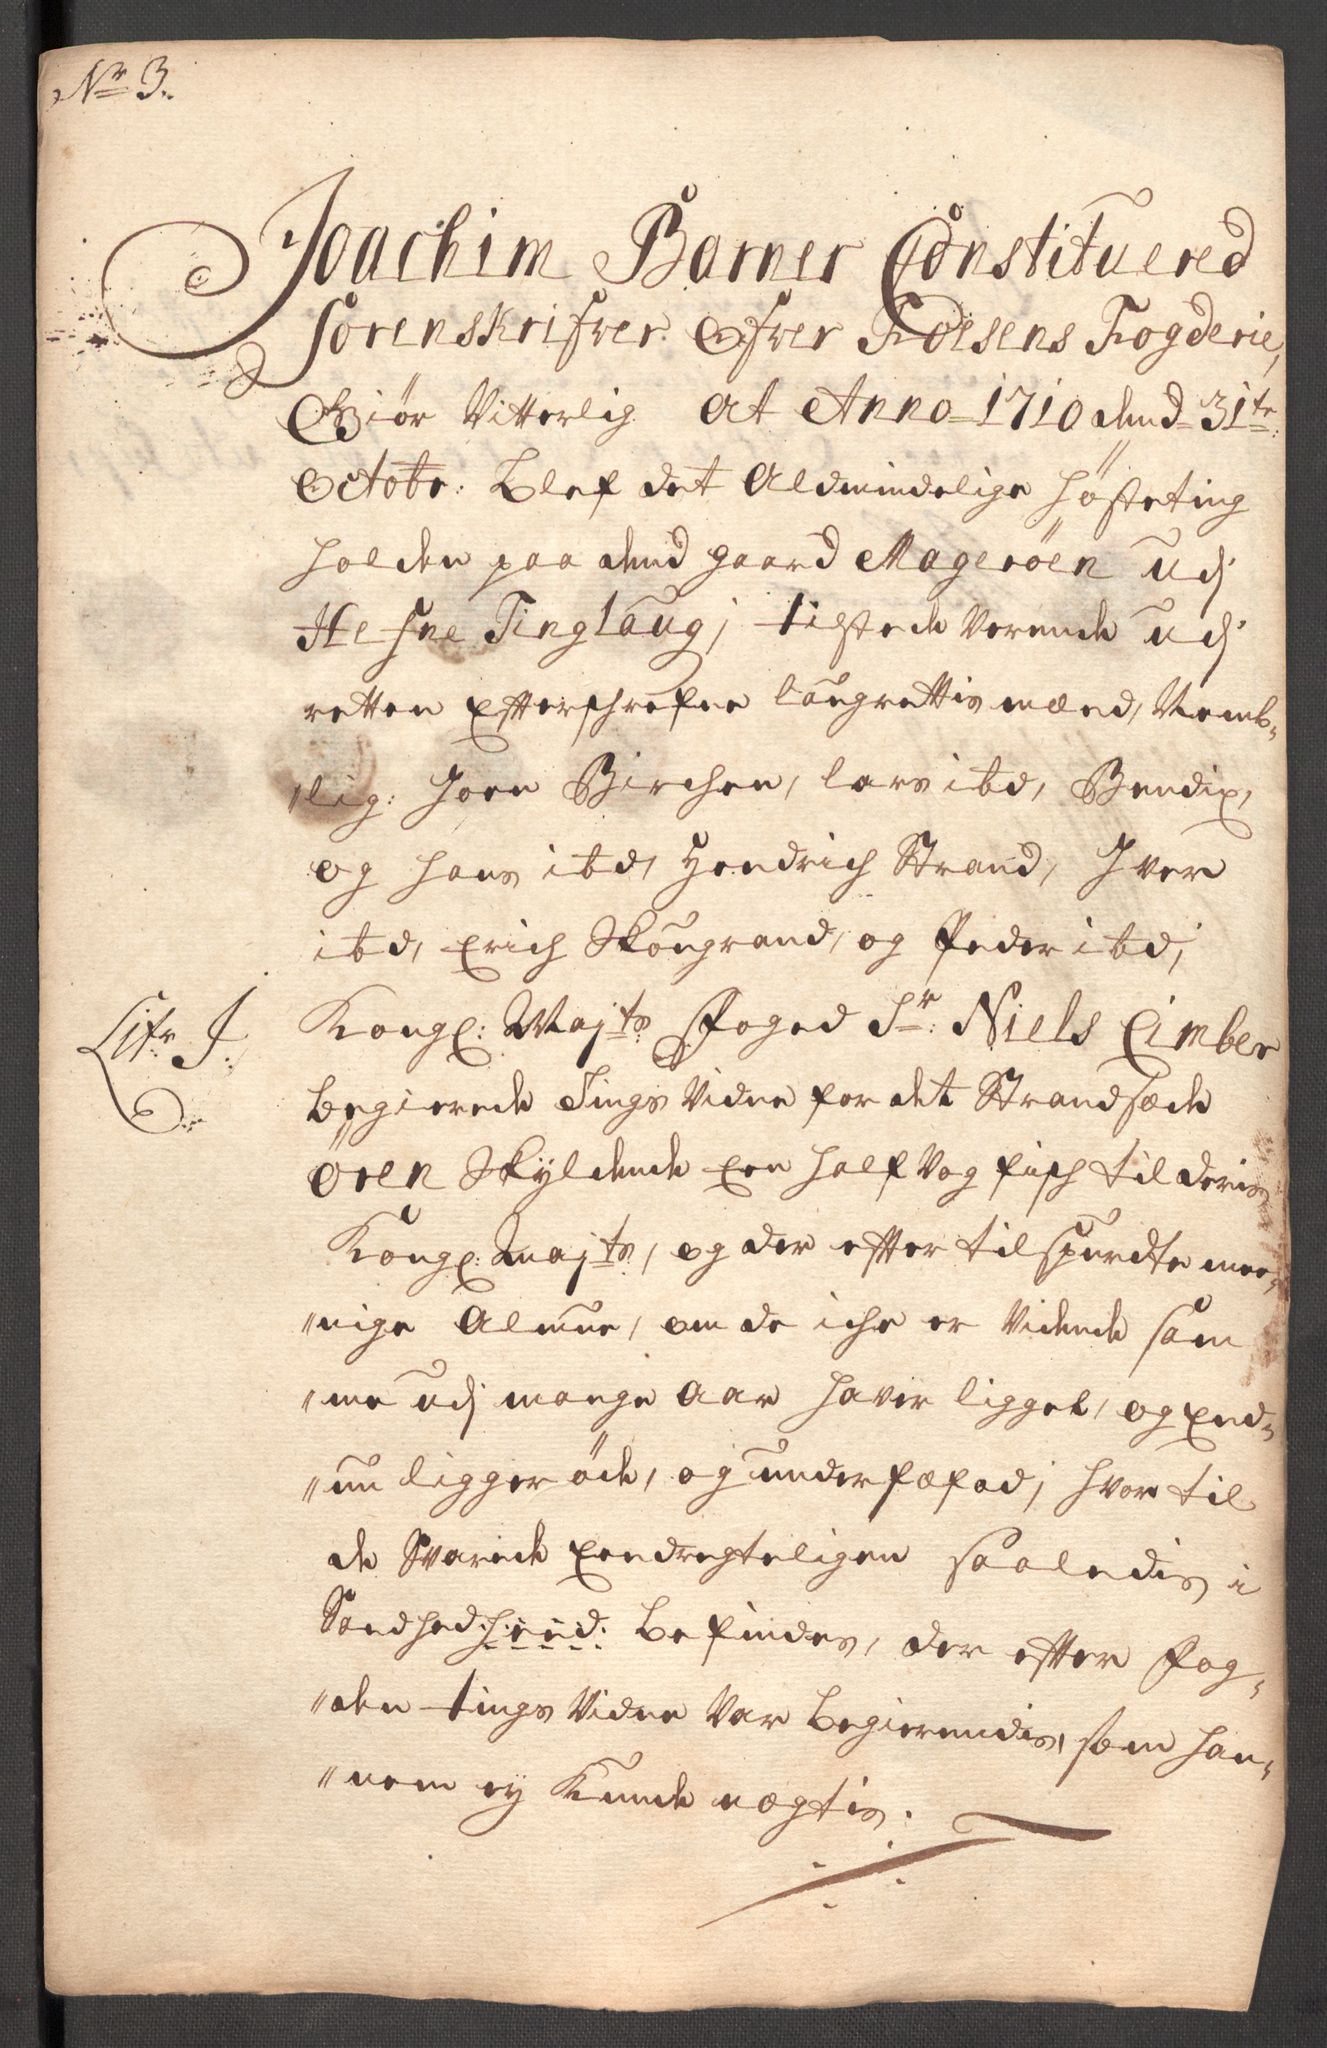 Nr 3.
Joachim Barner Constituered
Sorenskrifver Ofver Foesens Fogderie,
Giör Vitterlig At Anno 1710 dend 31te
Octobr: Blef det Aldmindelige Höfteting
holden paa dend gaard Mageröen udj
Hefne Tinglaug, tilstede Verende udj
retten Efterschrefne laugrettis mænd, Nemb-
lig: Joen Birchen, lars ibd, Bendix,
og Hans ibd, Hendrich Strand, Iver
ibd, Erich Skougrand, og Peder ibd,
Litr I: Kongl: Maijts Foged Sr: Niels Cimber
begierede Tings Vidne for det Strandsæde
Ören Skyldende Een half Vog fisch til deris
Kongl: Maijts, og der efter tilspurdte mee-
nige Almue, om de iche er Vidende sam
me udj mange Aar haver ligget, og End-
nu ligger öde, og under fæfod, hvor til
de Svarede Eendregteligen saaledis i
Sandhed: heed: befindes, der efter Fog-
den tings Vidne Var begierendis, som han-
nem ey Kunde nægtis.